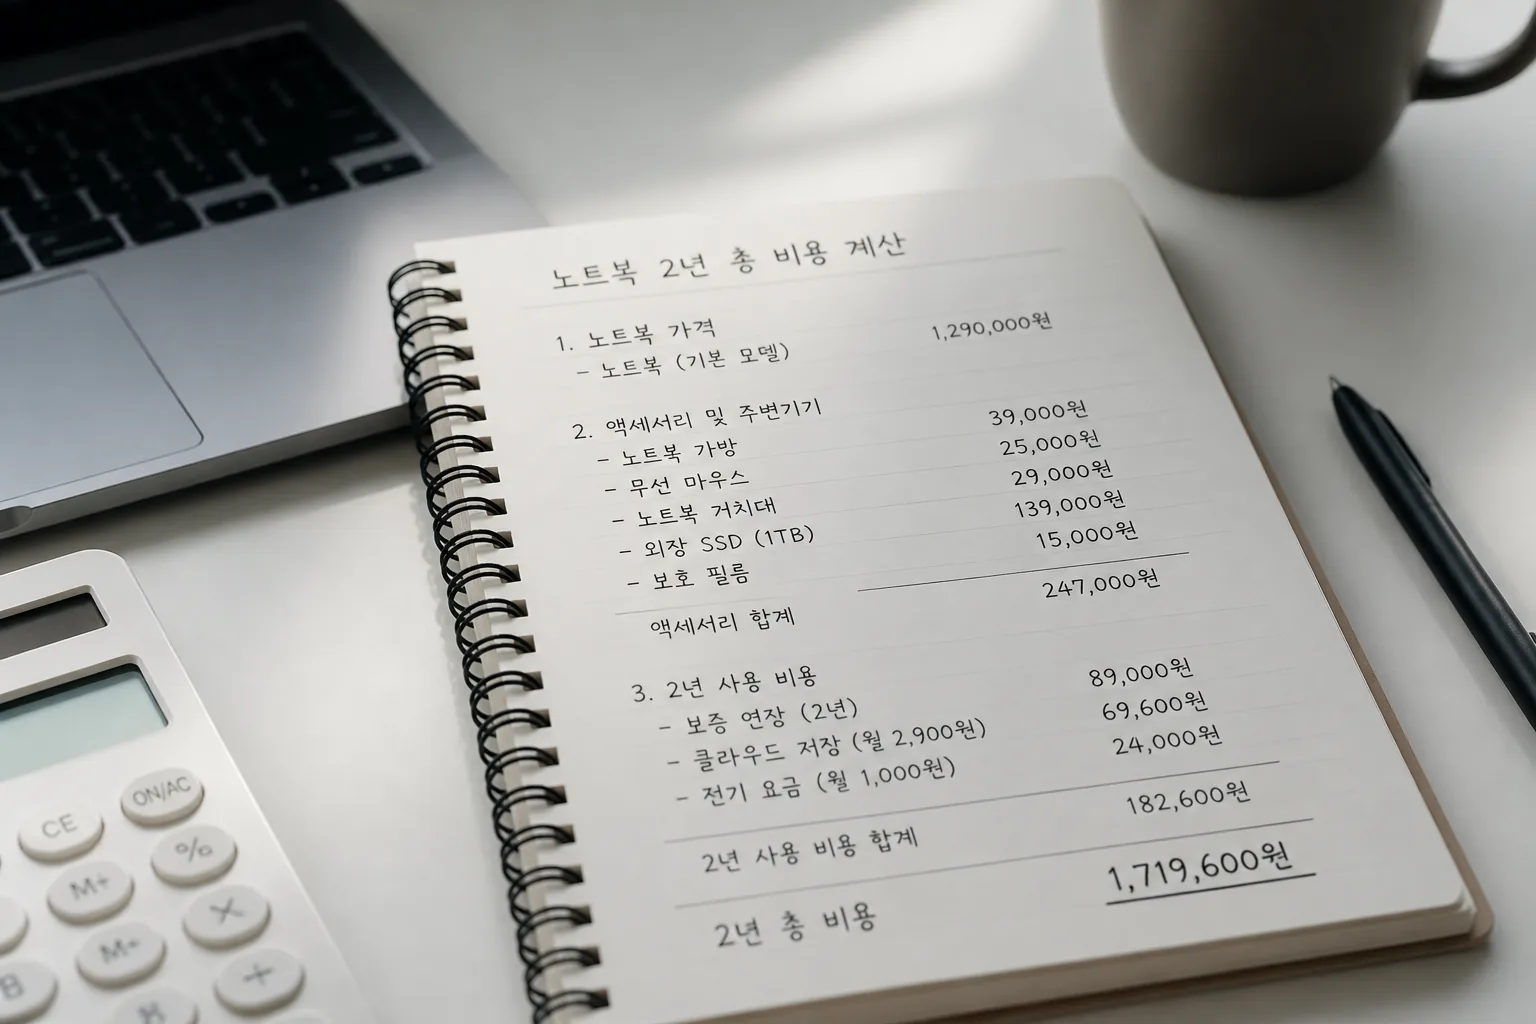 노트북 2년 총 비용 계산
1. 노트북 가격
- 노트북 (기본 모델) 1,290,000원
2. 액세서리 및 주변기기
- 노트북 가방 39,000원
- 무선 마우스 25,000원
- 노트북 거치대 29,000원
- 외장 SSD (1TB) 139,000원
- 보호 필름 15,000원
액세서리 합계 247,000원
3. 2년 사용 비용
- 보증 연장 (2년) 89,000원
- 클라우드 저장 (월 2,900원) 69,600원
- 전기 요금 (월 1,000원) 24,000원
2년 사용 비용 합계 182,600원
2년 총 비용 1,719,600원
ON/AC
CE
%
M+
×
M+
+
B